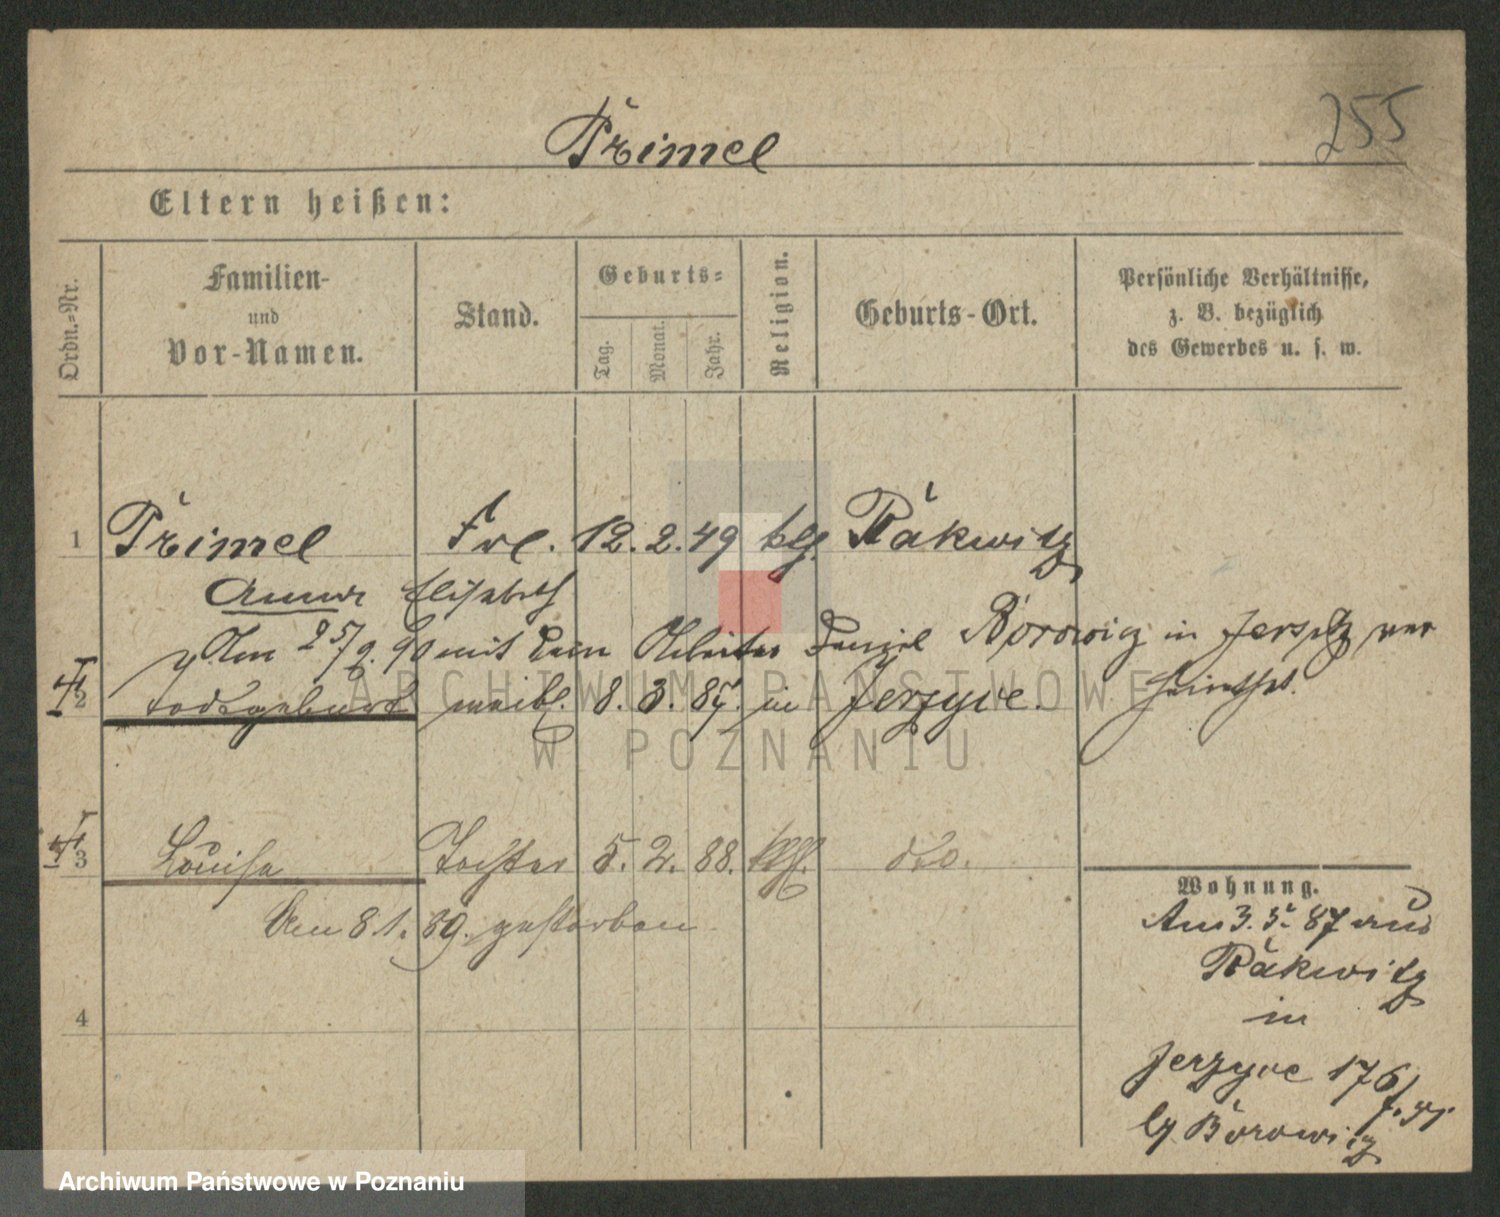 Primel
255
Eltern heißen:
Ordn.-Nr.
Familien-
und
Vor-Namen.
Stand.
Geburts-
Tag.
Monat.
Jahr.
Religion.
Geburts-Ort.
Persönliche Verhältnisse,
z. B. bezüglich
des Gewerbes u. s. w.
1 Primel Frl. 12. 2. 49 klg. Räkwitz
Anna Elisabeth
Am 25/9. 90 mit dem Arbeiter Daniel Borowicz in Jersitz ver
2 todtgeburt weibl. 8. 3. 87. in Jerzyce. heirathet.
3 Louisa Tochter 5. 2. 88. dto.
Am 8. 1. 89. gestorben.
4
Wohnung.
Am 3. 5. 87 aus
Räkwitz
in
Jerzyce 176
by Borowicz
ARCHIWUM PAŃSTWOWE
W POZNANIU
Archiwum Państwowe w Poznaniu